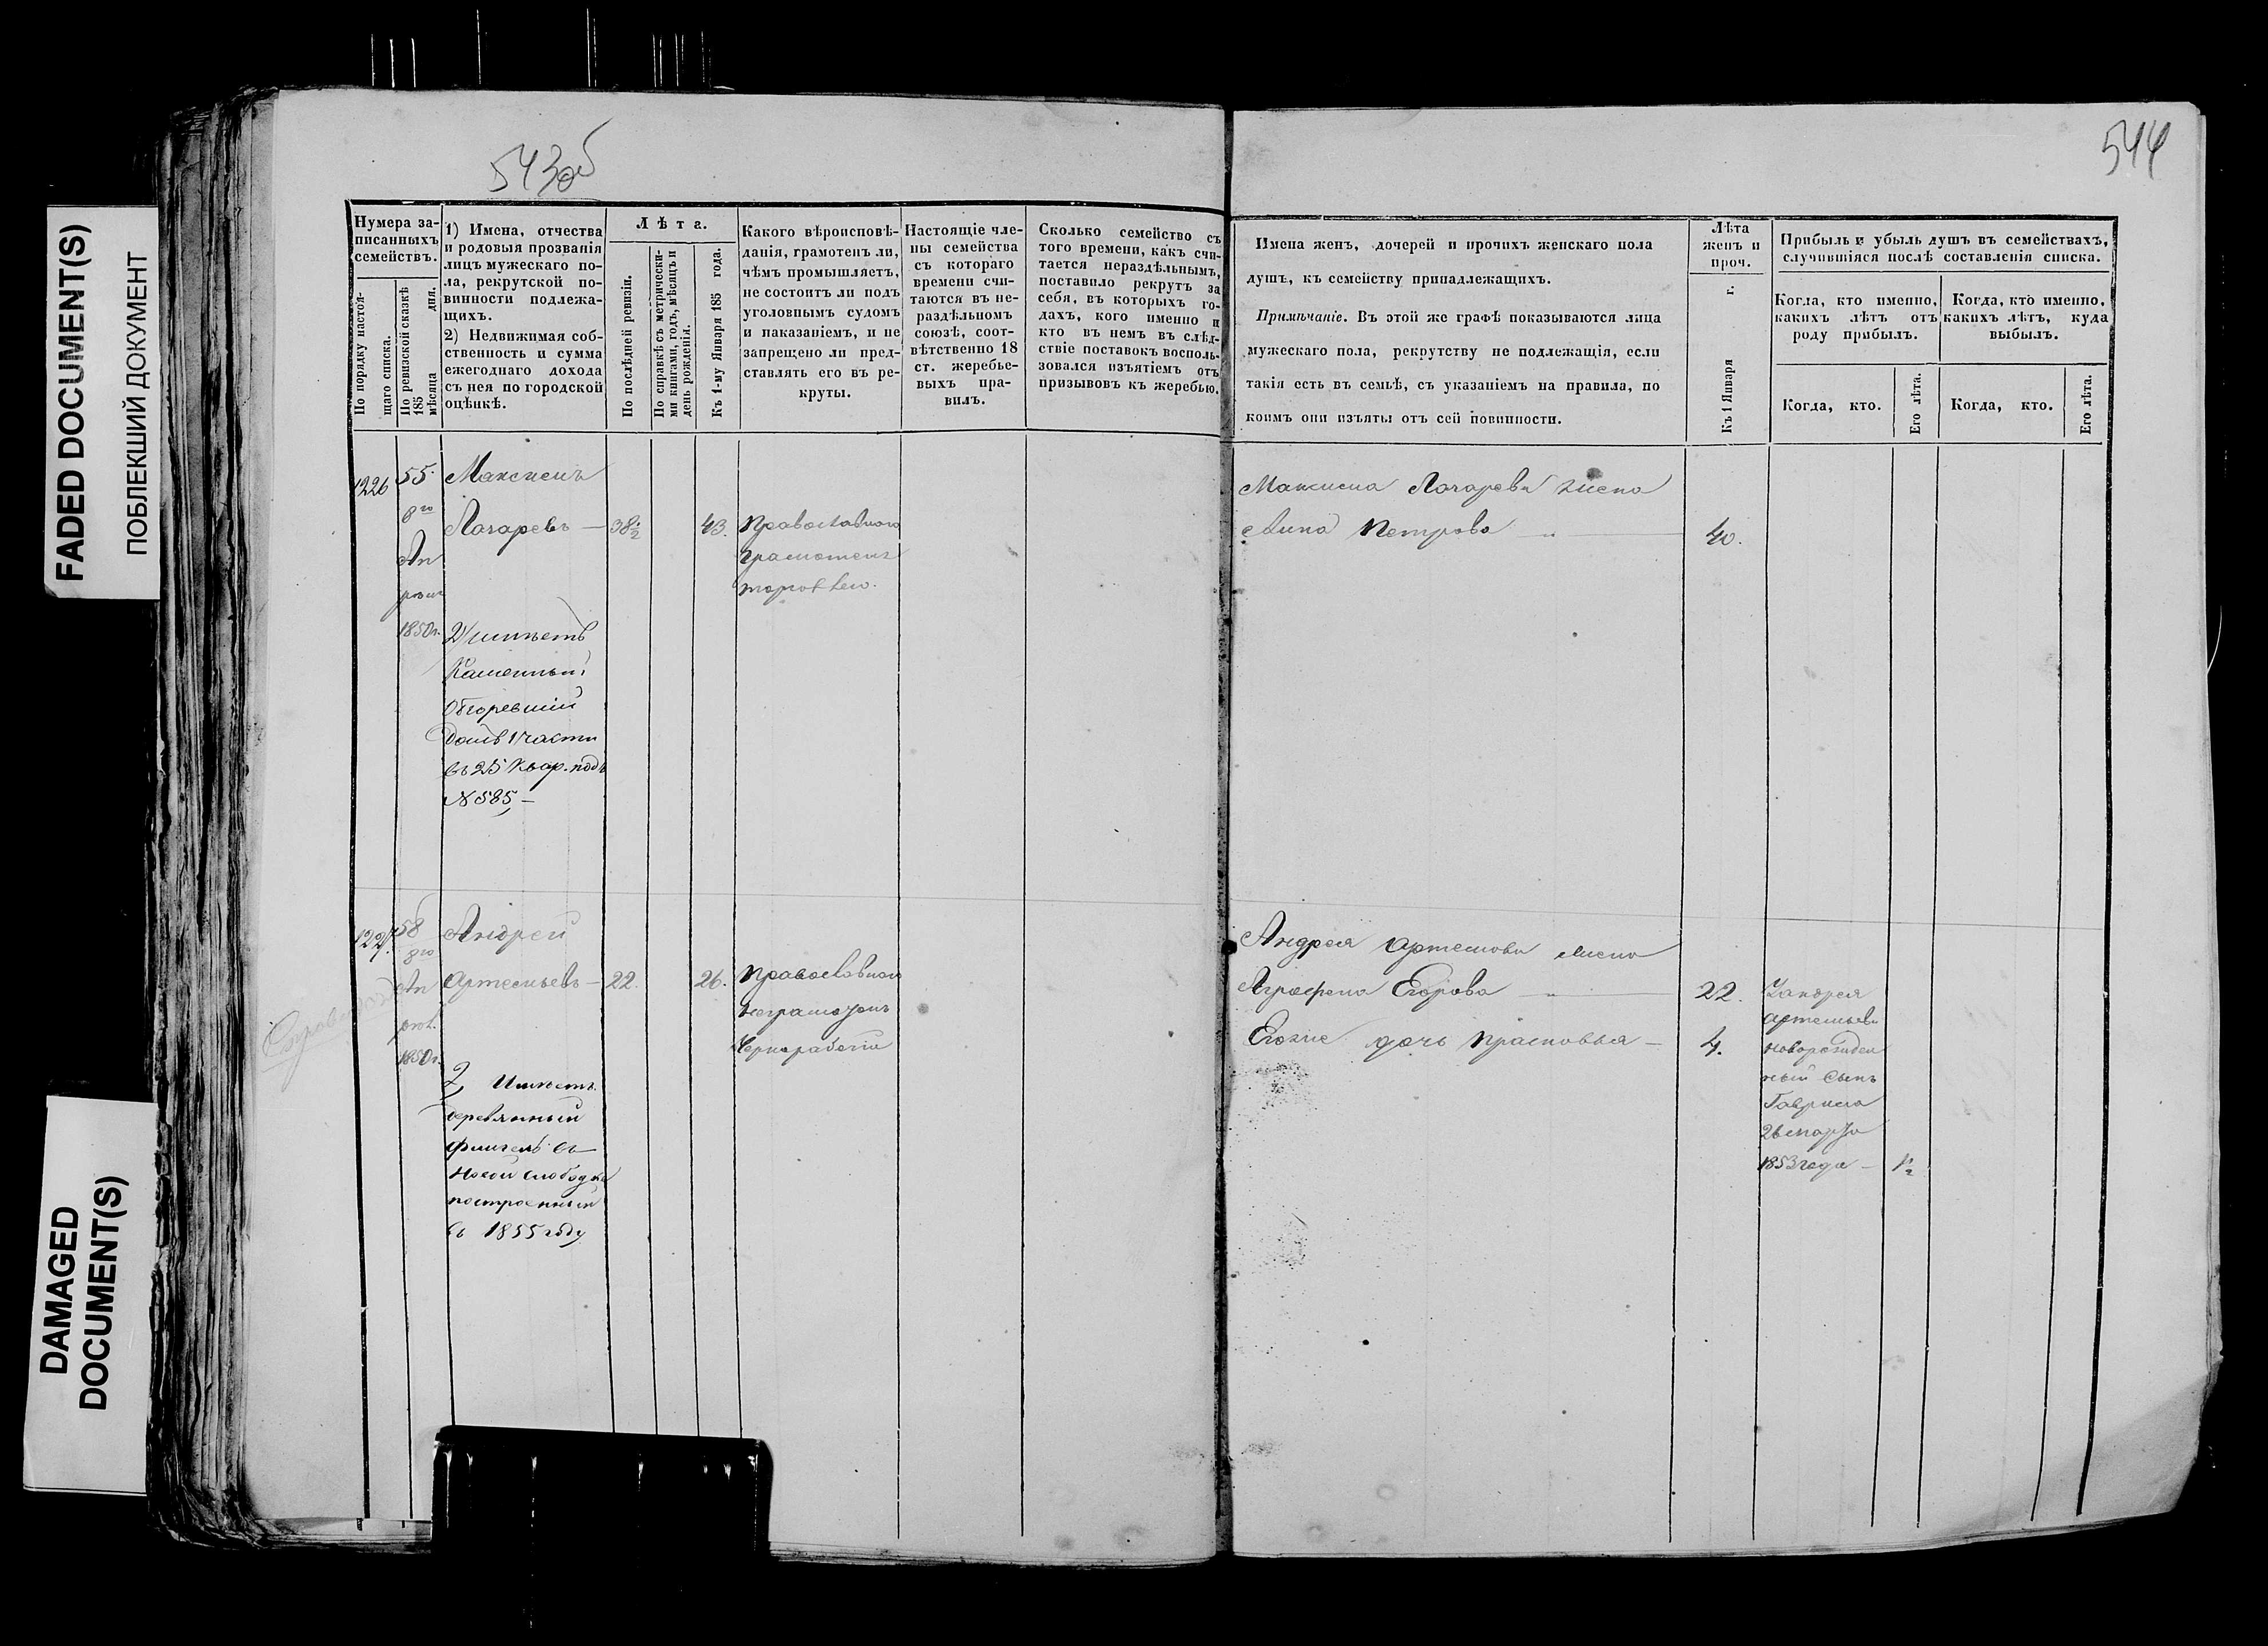 FADED DOCUMENT(S)
ПОБЛЕКШИЙ ДОКУМЕНТ
DAMAGED
DOCUMENT(S)
543об
544
Нумера за-
писанныхъ
семействъ.
По порядку настоя-
щаго списка.
По ревизской сказкѣ
185 дня.
мѣсяца
1) Имена, отчества
и родовыя прозванія
лицъ мужескаго по-
ла, рекрутской по-
винности подлежа-
щихъ.
2) Недвижимая соб-
ственность и сумма
ежегоднаго дохода
съ нея по городской
оцѣнкѣ.
Лѣта.
По послѣдней ревизіи.
По справкѣ съ метрически-
ми книгами, годъ, мѣсяцъ и
день рожденія.
Къ 1-му Января 185 года.
Какого вѣроисповѣ-
данія, грамотенъ ли,
чѣмъ промышляетъ,
не состоитъ ли подъ
уголовнымъ судомъ
и наказаніемъ, и не
запрещено ли пред-
ставлять его въ ре-
круты.
Настоящіе чле-
ны семейства
съ котораго
времени счи-
таются въ не-
раздѣльномъ
союзѣ, соот-
вѣтственно 18
ст. жеребье-
выхъ пра-
вилъ.
Сколько семейство съ
того времени, какъ счи-
тается нераздѣльнымъ,
поставило рекрутъ за
себя, въ которыхъ го-
дахъ, кого именно и
кто въ немъ въ слѣд-
ствіе поставокъ восполь-
зовался изъятіемъ отъ
призывовъ къ жеребью.
Имена женъ, дочерей и прочихъ женскаго пола
душъ, къ семейству принадлежащихъ.
Примѣчаніе. Въ этой же графѣ показываются лица
мужескаго пола, рекрутству не подлежащія, если
такія есть въ семьѣ, съ указаніемъ на правила, по
коимъ они изъяты отъ сей повинности.
Лѣта
женъ и
проч.
Къ 1 Января г.
Прибыль и убыль душъ въ семействахъ,
случившіяся послѣ составленія списка.
Когда, кто именно,
какихъ лѣтъ отъ
роду прибылъ.
Когда, кто именно,
какихъ лѣтъ, куда
выбылъ.
Когда, кто.
Его лѣта.
Когда, кто.
Его лѣта.
1226
55
8го
Ап
рѣля
1850г.
Максимъ
Лазаревъ — 38½ 43.
Православнаго
Грамотенъ
2, имѣетъ
Каменный
обгоревшій
домъ 1 части
въ 25 квар. подъ
№ 585, —
Максима Лазарева жена
Анна Петрова — 40.
1227.
58
8го
Ап
рѣл.
1850г.
Андрей
Артемьевъ — 22. 26.
Православнаго
неграмотенъ
Чернорабочій
2, Имѣетъ
деревянный
флигель въ
Новой слободке
построенный
въ 1855 году
Андрея Артемьева жена
Аграфена Егорова — 22.
Егоже дочь Прасковья — 4.
У Андрея
Артемьева
новорожден
ный сынъ
Гаврила
26 марта
1853 года — ½